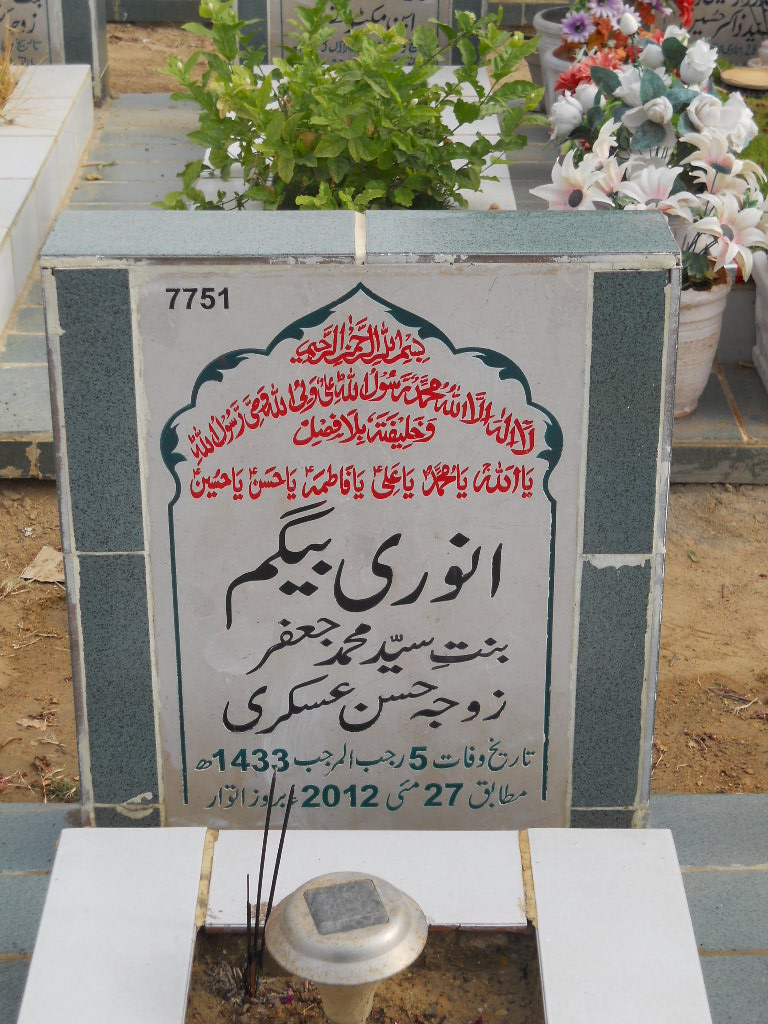 7751
بسم اللہ الرحمن الرحیم
لا الہ الا اللہ محمد رسول اللہ علی ولی اللہ وصی رسول اللہ
و خلیفتہ بلا فصل
یا اللہ یا محمدؐ یا علیؑ یا فاطمہؑ یا حسنؑ یا حسینؑ
انوری بیگم
بنتِ سیّد محمد جعفر
زوجہ حسن عسکری
تاریخ وفات 5 رجب المرجب 1433ھ
مطابق 27 مئی 2012ء بروز اتوار